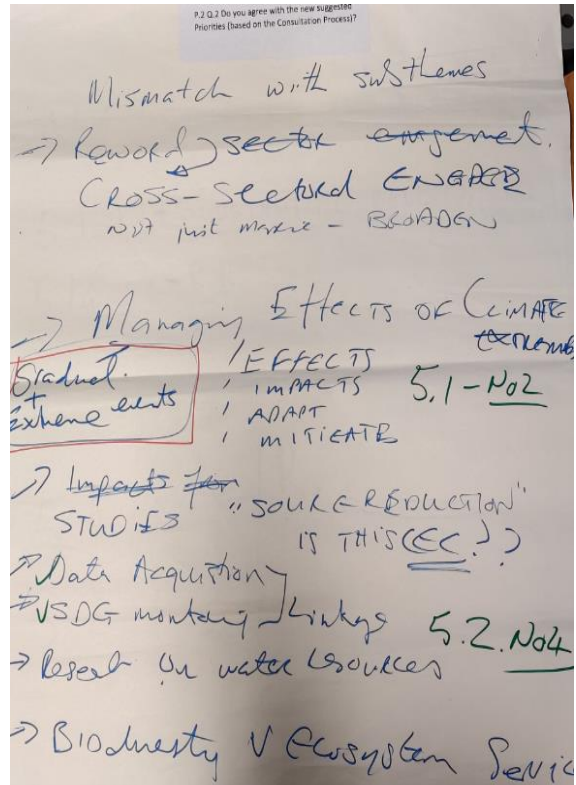 P.2 Q.2 Do you agree with the new suggested
Priorities (based on the Consultation Process)?
Mismatch with subthemes
→ Reword sector engagement.
CROSS-Sectoral ENGAGE
Not just marine - BROADEN
→ Managing Effects OF CLIMATE
extremes
Gradual
+
extreme events
/ EFFECTS
/ IMPACTS
/ ADAPT
/ MITIGATE
5.1-No2
→ Impacts for
STUDIES "SOURCE REDUCTION"
IS THIS CEC??
→ Data Acquistion
→ VSDG monitoring Linkage
5.2.No4
→ on water resources
→ Biodivesty V Ecosystem Servic